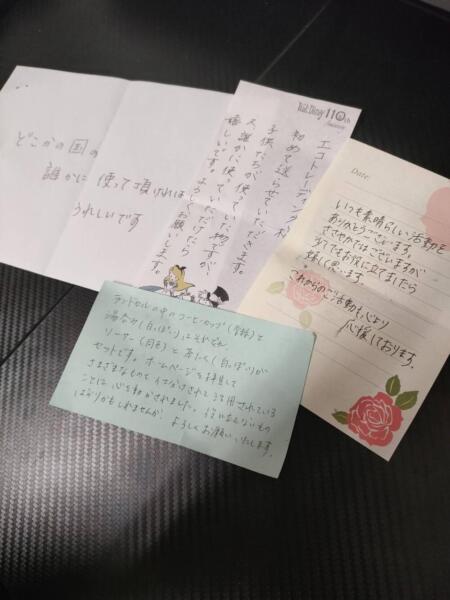 どこかの国の
誰かに使って頂ければ
うれしいです
Walt Disney 110th
エコトレーディング 様
初めて送らせていただきます。
子供たちが使っていた物ですが、
誰かに使っていただけたら
嬉しいです。よろしくお願いします。
Date:
いつも素晴らしい活動を
ありがとうございます。
ささやかではございますが
少しでもお役に立てましたら
嬉しく思います。
これからのご活動も心より
応援しております。
ランドセルの中のコーヒーカップ(
湯のみ(白っぽい)にそれぞれ
ソーサー(
セットです。ホームページを拝見して
さまざまなものもイカされて活用されている
ことに心を動かされました。
ばかりかもしれませんが、よろしくお願いいたします。